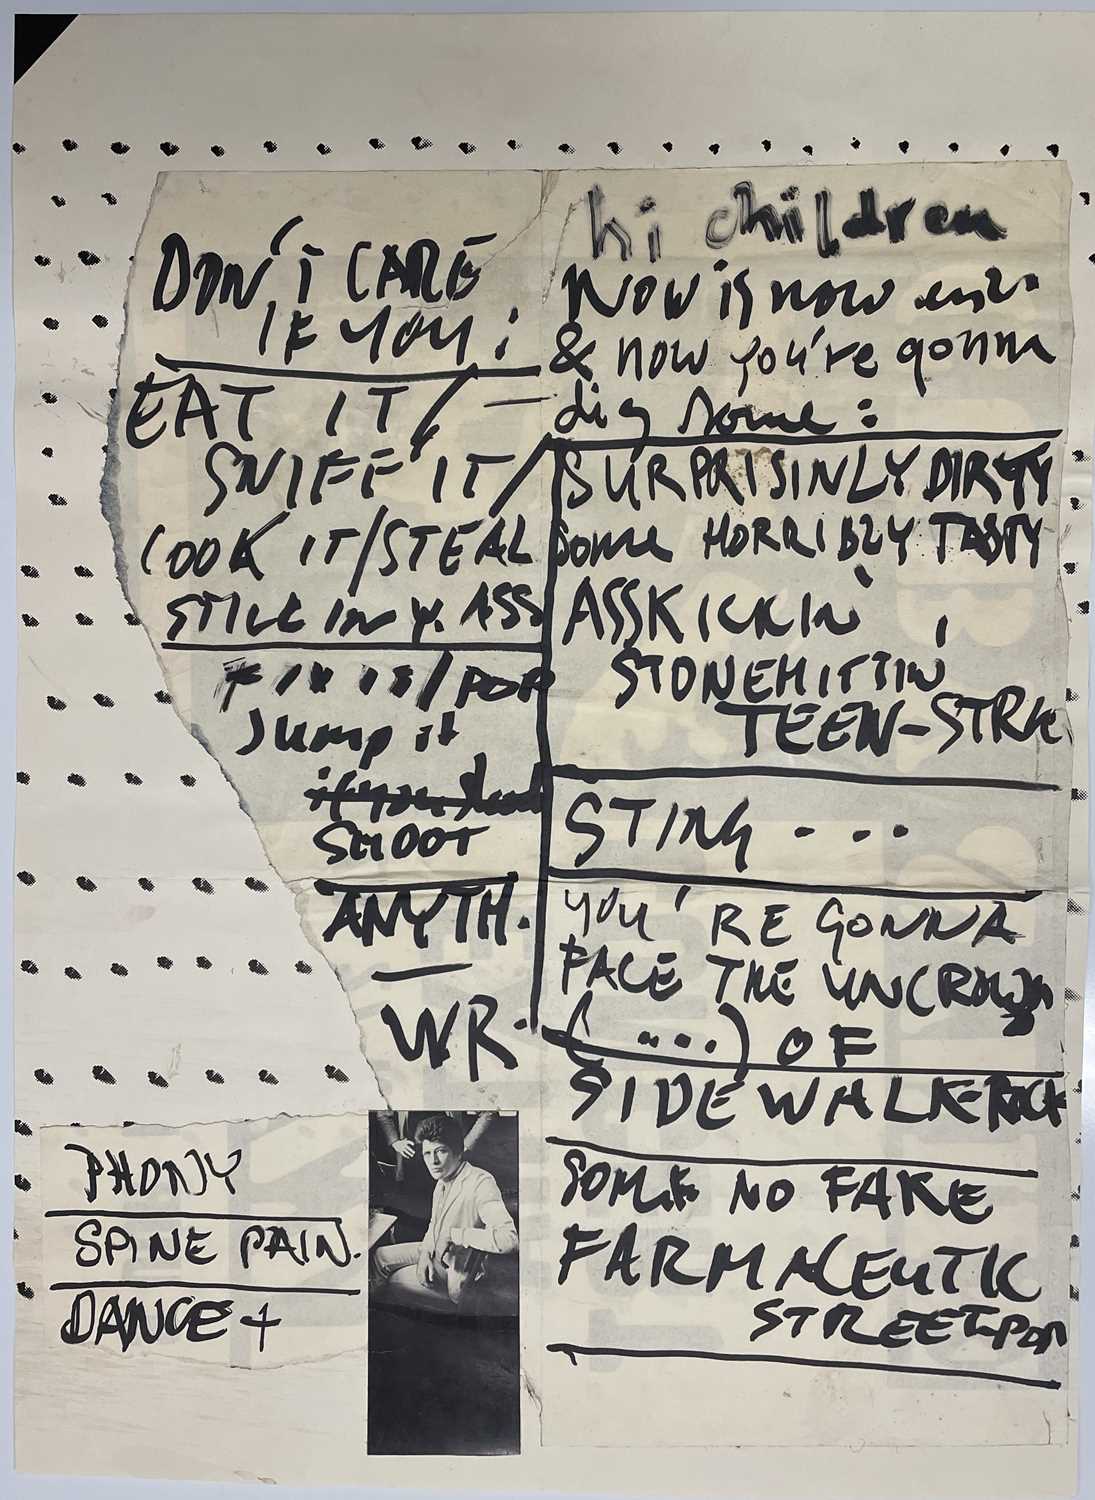 DON'T CARE
IF YOU:
EAT IT/
SNIFF IT/
COOK IT/STEAL
STICK IN Y. ASS
FIX IT/POP
Jump it
SHOOT
ANYTH.
WR.
PHONY
SPINE PAIN.
DANCE +
hi children
NOW is now
& now you're gonna
dig some:
SURPRISINLY DIRTY
some HORRIBLY TASTY
ASSKICKIN'
STONEHITTIN'
TEEN-STRK
STING ...
YOU'RE GONNA
FACE THE UNCROWN
(....) OF
SIDEWALK-ROCK
SOME NO FAKE
FARMACEUTIC
STREET-POP